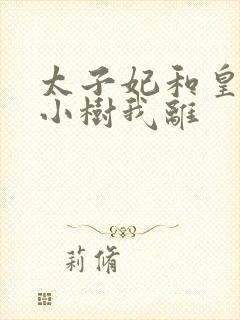 太子妃和皇
小樹我離
莉脩